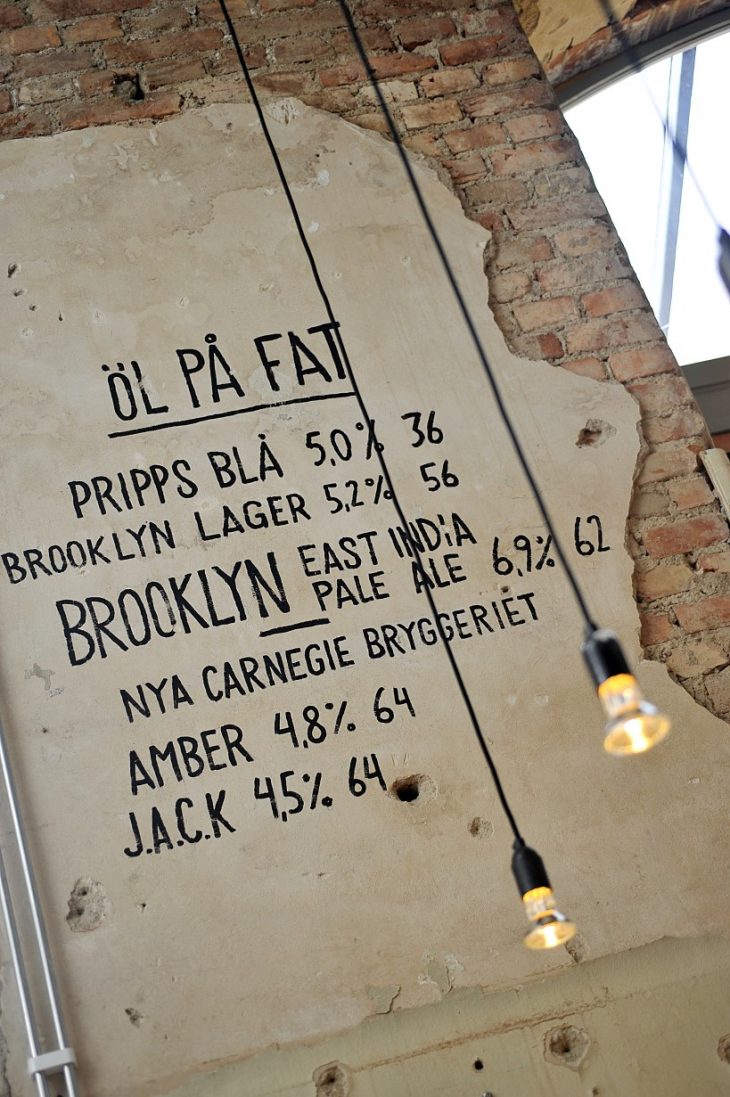 ÖL PÅ FAT
PRIPPS BLÅ 5,0% 36
BROOKLYN LAGER 5,2% 56
BROOKLYN EAST INDIA PALE ALE 6,9% 62
NYA CARNEGIE BRYGGERIET
AMBER 4,8% 64
J.A.C.K 4,5% 64